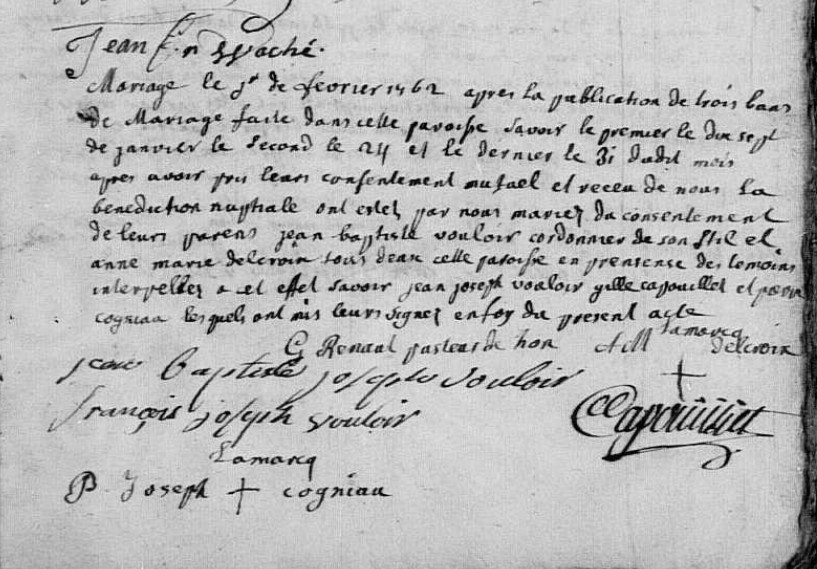 Jean f. n waché.
Mariage le jr de fevrier 1762 apres la publication de trois bans
de Mariage faite dans cette paroisse savoir le premier le dix sept
de janvier le second le 24 et le dernier le 31 dudit mois
apres avoir pris leurs consentement mutuel et receu de nous la
benediction nuptiale ont estez par nous mariez du consentement
de leurs parens jean baptiste vouloir cordonnier de son stil et
anne marie delcroix tous deux cette paroisse en prensence des temoins
interpellez a cet effet savoir jean joseph vouloir gille capouillez et
cogniau lesquels ont mis leurs signez en foy du present acte
G Renaut pasteur de hon AM lamarcq delcroix
jean Baptiste joseph vouloir
françois joseph vouloir Capouilliet
Lamarcq
P. Joseph + cogniau